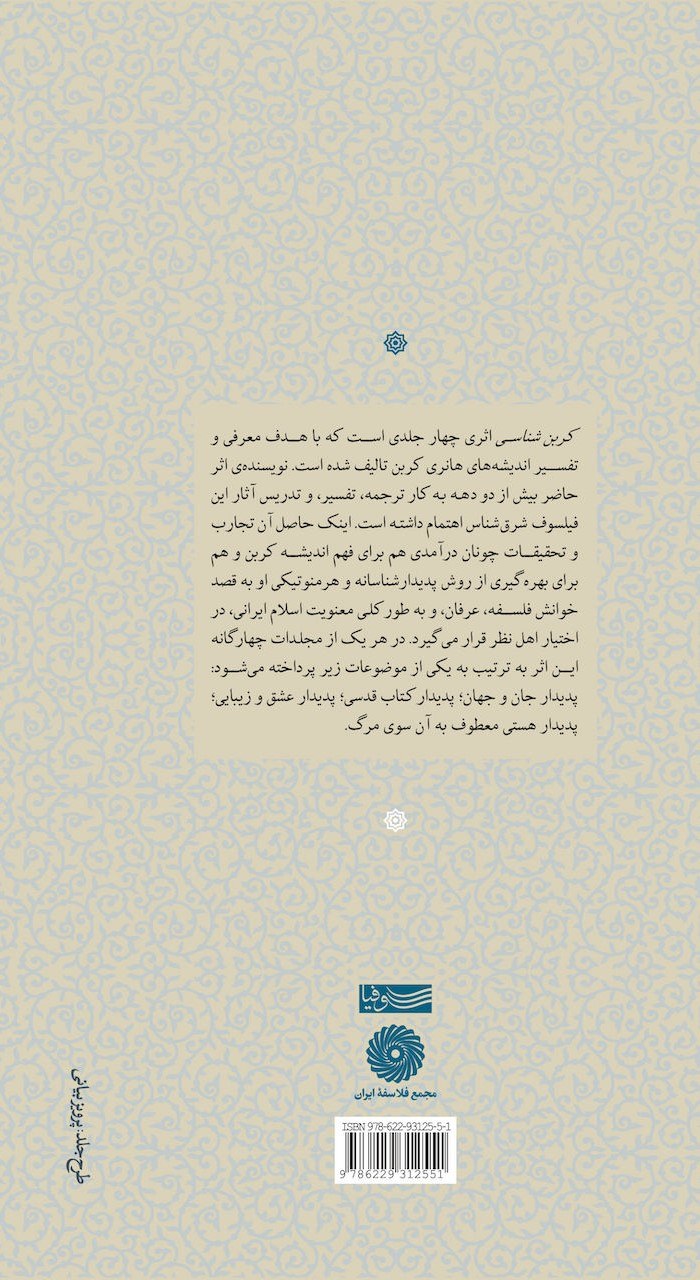 کربن شناسی اثری چهار جلدی است که با هدف معرفی و
تفسیر اندیشه‌های هانری کربن تالیف شده است. نویسنده‌ی اثر
حاضر بیش از دو دهه به کار ترجمه، تفسیر، و تدریس آثار این
فیلسوف شرق‌شناس اهتمام داشته است. اینک حاصل آن تجارب
و تحقیقات چونان درآمدی هم برای فهم اندیشه کربن و هم
برای بهره‌گیری از روش پدیدارشناسانه و هرمنوتیکی او به قصد
خوانش فلسفه، عرفان، و به طور کلی معنویت اسلام ایرانی، در
اختیار اهل نظر قرار می‌گیرد. در هر یک از مجلدات چهارگانه
این اثر به ترتیب به یکی از موضوعات زیر پرداخته می‌شود:
پدیدار جان و جهان؛ پدیدار کتاب قدسی؛ پدیدار عشق و زیبایی؛
پدیدار هستی معطوف به آن سوی مرگ.
سوفیا
مجمع فلاسفهٔ ایران
ISBN 978-622-93125-5-1
9 786229 312551
طرح جلد: پرویز بیانی